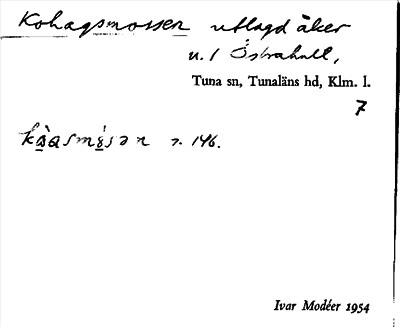 Kohagsmossen utlagd åker
u. / Östrahult,
Tuna sn, Tunaläns hd, Klm. l.
7
s. 146.
Ivar Modéer 1954